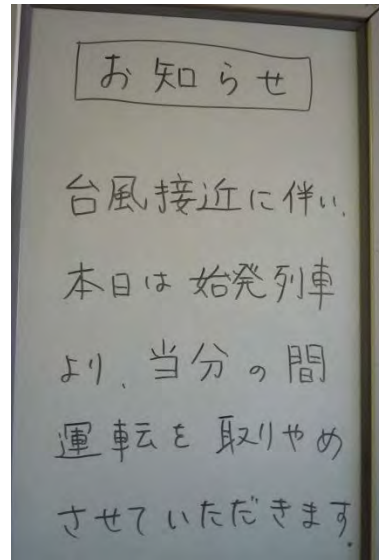 お知らせ
台風接近に伴い、
本日は始発列車
より、当分の間
運転を取りやめ
させていただきます。